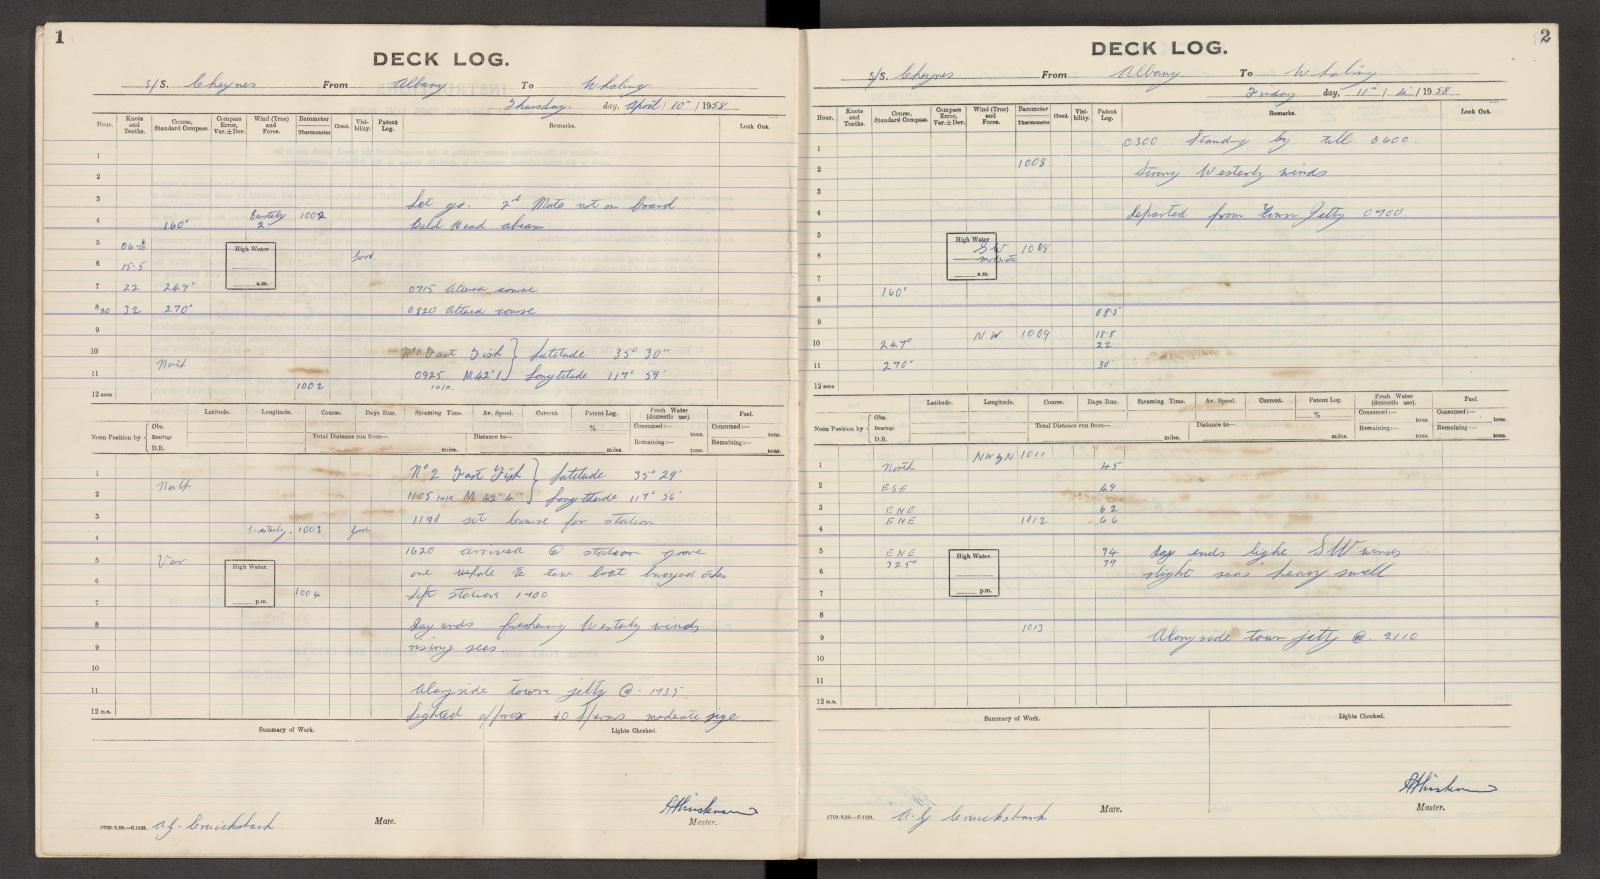 1
DECK LOG.
S/S. Cheynes From Albany To Whaling
Thursday day, April / 10th / 1958
Hour. Knots and Tenths. Course, Standard Compass. Compass Error, Var. ± Dev. Wind (True) and Force. Barometer Thermometer Cloud. Visibility. Patent Log. Remarks. Look Out.
1
2
3 Let go. 2nd Mate not on board
4 160° Easterly 2 1002 Bald Head abeam
5
High Water a.m.
6 15.5 Good
7 22 247° 0715 Altered course
8 20 32 270° 0820 Altered course
9
10 No 1 Fast Fish } Latitude 35° 30"
11 North 0925 M 42'1 } Longtitude 117° 59'
12 noon 1002
Latitude. Longitude. Course. Days Run. Steaming Time. Av. Speed. Current. Patent Log. Fresh Water (domestic use). Fuel.
Noon Position by { Obs. Bearings D.R. Total Distance run from— miles. Distance to— miles. % Consumed:— tons. Remaining:— tons. Consumed:— tons. Remaining:— tons.
1 No 2 Fast Fish } Latitude 35° 29'
2 North 1105 M 42" 4" } Longtitude 117° 56'
3 set course for station
4 1003 Good
5 Var 1620 arrived @ station gave
High Water. p.m.
6 one whale to tow boat buoyed other
7 1004 Left station 1700
8 Day ends freshening Westerly winds
9 rising seas
10
11 Alongside town jetty @ 1935
12 m.n. Sighted approx 40 Sperms moderate size
Summary of Work. Lights Checked.
C702.3,58.—C.1821. A. G. Cruickshank Mate. Master.
2
DECK LOG.
S/S. Cheynes From Albany To Whaling
Friday day, 11th / 4 / 1958
Hour. Knots and Tenths. Course, Standard Compass. Compass Error, Var. ± Dev. Wind (True) and Force. Barometer Thermometer Cloud. Visibility. Patent Log. Remarks. Look Out.
1 0300 Standing by till 0600.
2 1008 Strong Westerly winds
3
4 Departed from Town Jetty 0700.
5
High Water a.m.
6 SW moderate 1008
7
8 160°
9 08.5
10 247° NW 1009 18.8 22
11 270° 30
12 noon
Latitude. Longitude. Course. Days Run. Steaming Time. Av. Speed. Current. Patent Log. Fresh Water (domestic use). Fuel.
Noon Position by { Obs. Bearings D.R. Total Distance run from— miles. Distance to— miles. % Consumed:— tons. Remaining:— tons. Consumed:— tons. Remaining:— tons.
1 North NW by N 1011 45
2 ESE 49
3 ENE 62
4 ENE 1012 66
5 ENE 74 Day ends light SW winds
High Water. p.m.
6 325° 79 slight seas heavy swell
7
8
9 1013 Alongside town jetty @ 2110
10
11
12 m.n.
Summary of Work. Lights Checked.
C702.3,58.—C.1821. A. G Cruickshank Mate. Master.